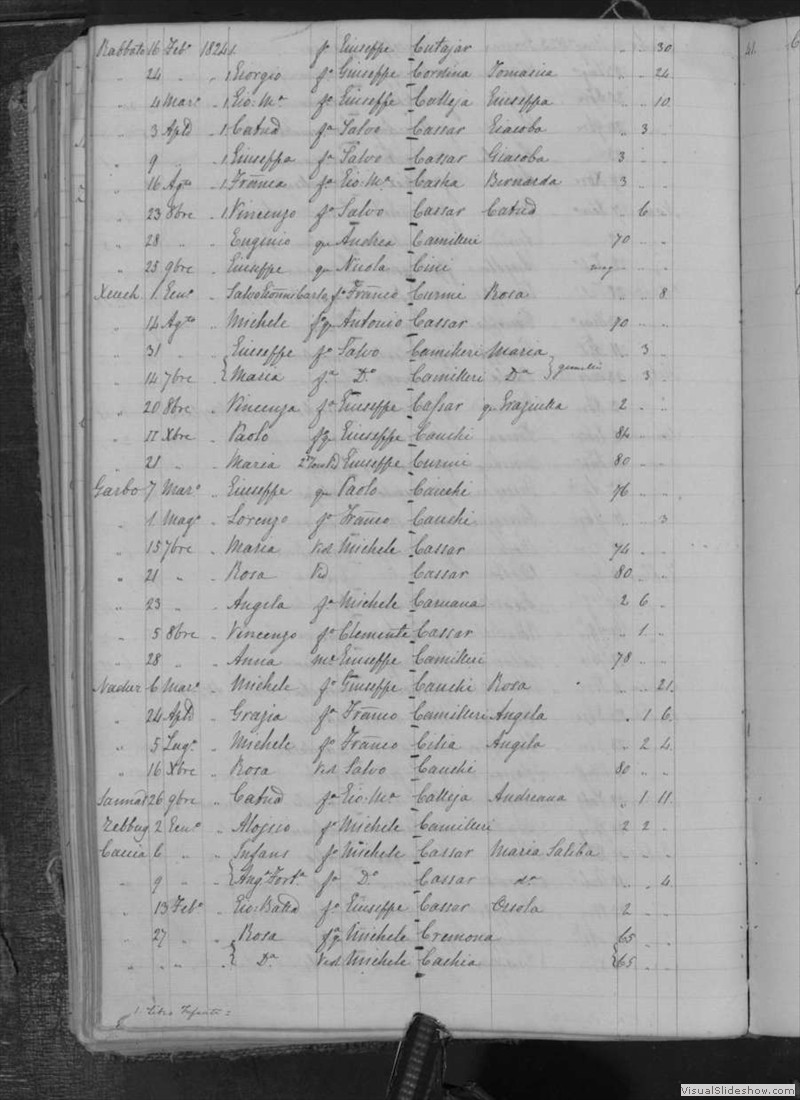 Rabbato 16 Febº 1824 1. fº Giuseppe Cutajar .. .. 30
.. 24 .. 1 Giorgio fº Giuseppe Cordina Tomasia .. .. 24
.. 4 Marº 1 Gio: Mª fº Giuseppe Calleja Giuseppa .. .. 10
.. 3 Aple 1 Catnd fª Salvo Cassar Giacoba .. 3 ..
.. 9 .. 1 Giuseppa fª Salvo Cassar Giacoba 3 .. ..
.. 16 Agto 1 Franca fª Gio: Mª Cachia Bernarda 3 .. ..
.. 23 8bre 1 Vincenzo fº Salvo Cassar Catnd .. 6 ..
.. 28 .. .. Eugenio qm Andrea Camilleri 70 .. ..
.. 25 9bre .. Giuseppe qm Nicola Cini .. ..
Xeuch. 1 Genº .. Carlo fº Franco Curmi Rosa .. .. 8
.. 14 Agto .. Michele fqm Antonio Cassar 70 .. ..
.. 31 .. Giuseppe fº Salvo Camilleri Maria .. 3 ..
.. 14 7bre .. Maria fª Dº Camilleri Dª gemelli .. 3 ..
.. 20 8bre .. Vincenza fª Giuseppe Cassar qm Graziulla 2 .. ..
.. 11 Xbre .. Paolo fqm Giuseppe Cauchi 84 .. ..
.. 21 .. .. Maria Giuseppe Curmi 80 .. ..
Garbo 7 Marº .. Giuseppe qm Paolo Cauchi 76 .. ..
.. 1 Magº .. Lorenzo fº Franco Cauchi .. .. 3
.. 15 7bre .. Maria Vid Michele Cassar 74 .. ..
.. 21 .. .. Rosa Vid Cassar 80 .. ..
.. 23 .. Angela fª Michele Caruana 2 6 ..
.. 5 8bre .. Vincenzo fº Clemente Cassar .. 1 ..
.. 28 .. .. Anna Giuseppe Camilleri 78 .. ..
Nadur 6 Marº .. Michele fº Giuseppe Cauchi Rosa .. .. 21
.. 24 Aple .. Grazia fª Franco Camilleri Angela .. 1 6
.. 5 Lugº .. Michele fº Franco Cilia Angela .. 2 4
.. 16 Xbre .. Rosa Vid Salvo Cauchi 80 .. ..
Sannat 26 9bre .. Catnd fª Gio: Mª Calleja Andreana .. 1 11
Zebbug 2 Genº .. Aloisio fº Michele Camilleri 2 2 ..
Caccia 6 .. Infans fº Michele Cassar Maria Saliba .. .. ..
.. 9 .. Angª Fortª fª Dº Cassar dª .. .. 4
.. 13 Febº .. Gio: Batta fº Giuseppe Cassar Orsola 2 .. ..
.. 27 .. .. Rosa fqm Michele Cremona 65 .. ..
.. .. .. .. Dª Vid Michele Cachia 65 .. ..
1 Libro Infanti
41
VisualSlideshow.com